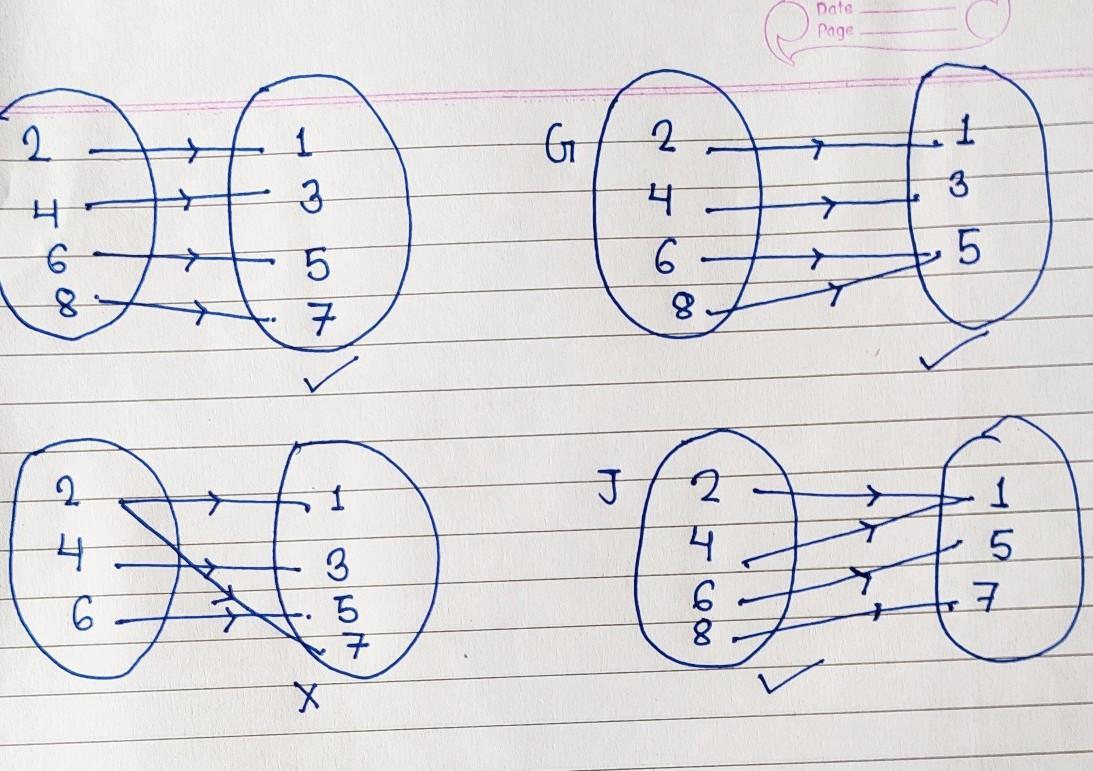 Date
Page
2 1
4 3
6 5
8 7
✓
G 2 1
4 3
6 5
8
✓
2 1
4 3
6 5
7
X
J 2 1
4 5
6 7
8
✓